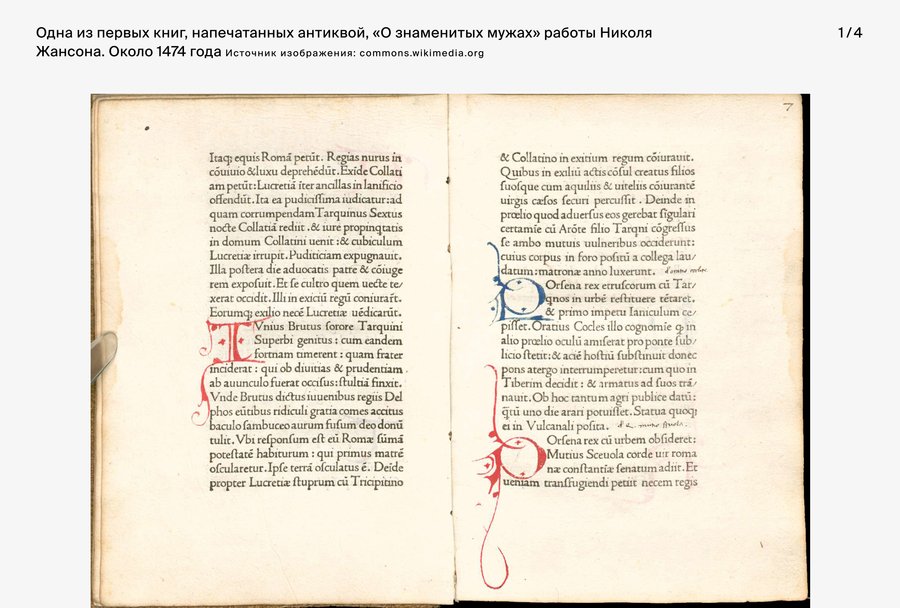 Одна из первых книг, напечатанных антиквой, «О знаменитых мужах» работы Николя
Жансона. Около 1474 года Источник изображения: commons.wikimedia.org
1/4
7
Itaqꝫ equis Romā petūt. Regias nurus in
cōuiuio &luxu deprehēdūt. Exide Collati
am petūt: Lucretiā iter ancillas in lanificio
offendūt. Ita ea pudicissima iudicatur: ad
quam corrumpendam Tarquinus Sextus
nocte Collatiā rediit. & iure propinqtatis
in domum Collatini uenit: & cubiculum
Lucretiæ irrupit. Puditiciam expugnauit.
Illa postera die aduocatis patre & cōiuge
rem exposuit. Et se cultro quem ueste te/
xerat occidit. Illi in exiciū regū coniurāt.
Eorumqꝫ exilio necē Lucretiæ uēdicarūt.
IVnius Brutus sorore Tarquini
Superbi genitus: cum eandem
fortnam timerent: quam frater
inciderat: qui ob diuitias & prudentiam
ab auunculo fuerat occisus: stultiā finxit.
Vnde Brutus dictus iuuenibus regiis Del
phos eūtibus ridiculi gratia comes accitus
baculo sambuceo aurum fusum deo donū
tulit. Vbi responsum est eū Romæ sūmā
potestatē habiturum: qui primus matrē
oscularetur. Ipse terrā osculatus ē. Deīde
propter Lucretiæ stuprum cū Tricipitino
& Collatino in exitium regum cōiurauit.
Quibus in exiliū actis cōsul creatus filios
suosque cum aquiliis & uiteliis cōiurantē
uirgis cæsos securi percussit. Deinde in
prœlio quod aduersus eos gerebat sigulari
certamie cū Arōte filio Tarqni cōgressus
se ambo mutuis uulneribus occiderunt:
cuius corpus in foro positū a collega lau/
datum: matronæ anno luxerunt.
POrsena rex etruscorum cū Tar/
qnos in urbē restituere tētaret.
& primo impetu Ianiculum ce/
pisset. Oratius Cocles illo cognomie q in
alio prœlio oculū amiserat pro ponte sub/
licio stetit: & aciē hostiū substinuit donec
pons atergo interrumperetur: cum quo in
Tiberim decidit: & armatus ad suos trā/
nauit. Ob hoc tantum agri publice datū:
q̄tū uno die arari potuisset. Statua quoqꝫ
ei in Vulcanali posita.
POrsena rex cū urbem obsideret:
Mutius Sceuola corde uir roma
næ constantiæ senatum adiit. Et
ueniam transfugiendi petiit necem regis